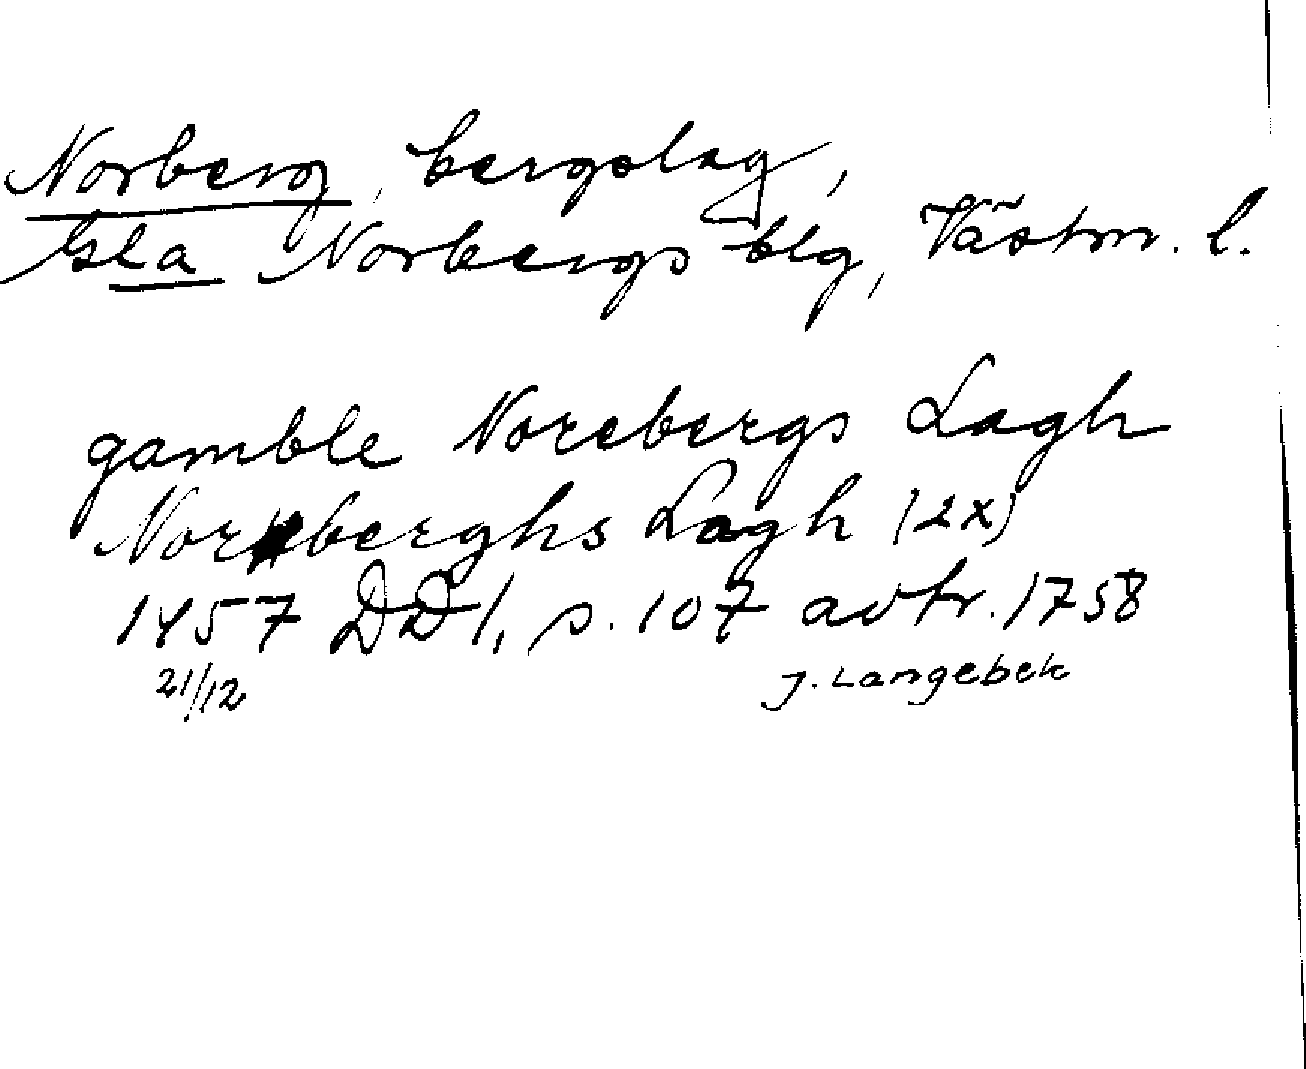 Norberg, bergslag,
Gla Norbergs blg, Västm. l.
gamble Norebergs Lagh
Norberghs Lagh (2x)
1457 DD1, s. 107 avtr. 1758
21/12 J. Langebek